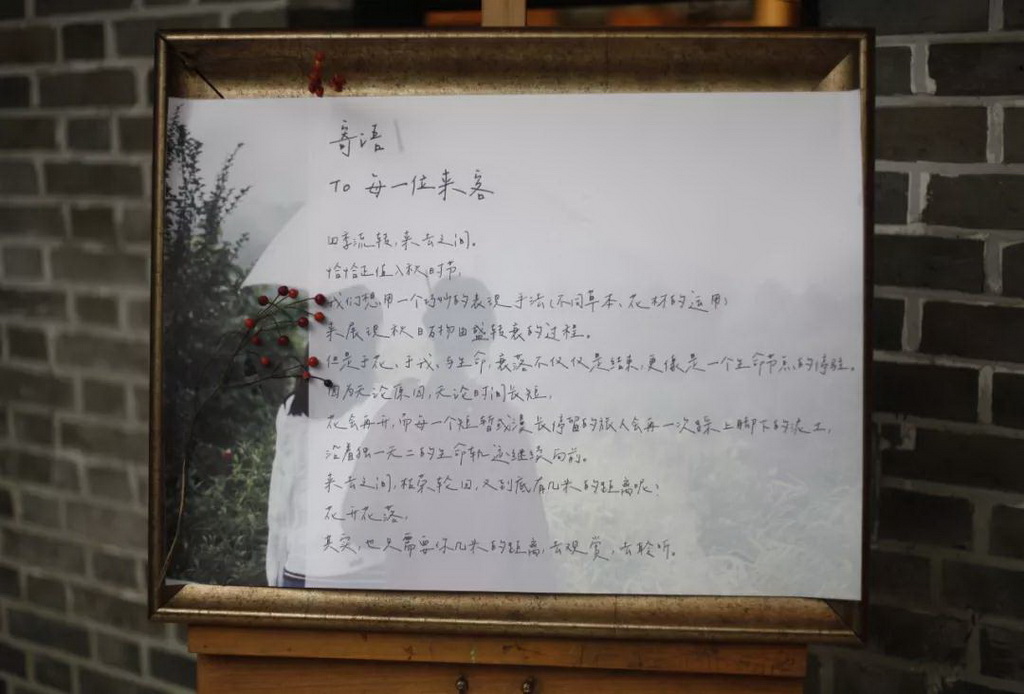 寄语
To 每一位来客
四季流转,来去之间。
恰恰正值入秋时节,
我们想用一个巧妙的表现手法(不同草本、花材的运用)
来展现秋日万物由盛转衰的过程。
但是于花、于我、与生命,衰落不仅仅是结束,更像是一个生命节点的停驻。
因为无论原因,无论时间长短,
花会再开,而每一个短暂或漫长停留的旅人会再一次踩上脚下的泥土,
沿着独一无二的生命轨迹继续向前。
来去之间,枯荣轮回,又到底有几米的距离呢?
花开花落,
其实,也只需要你几米的距离,去观赏,去聆听。